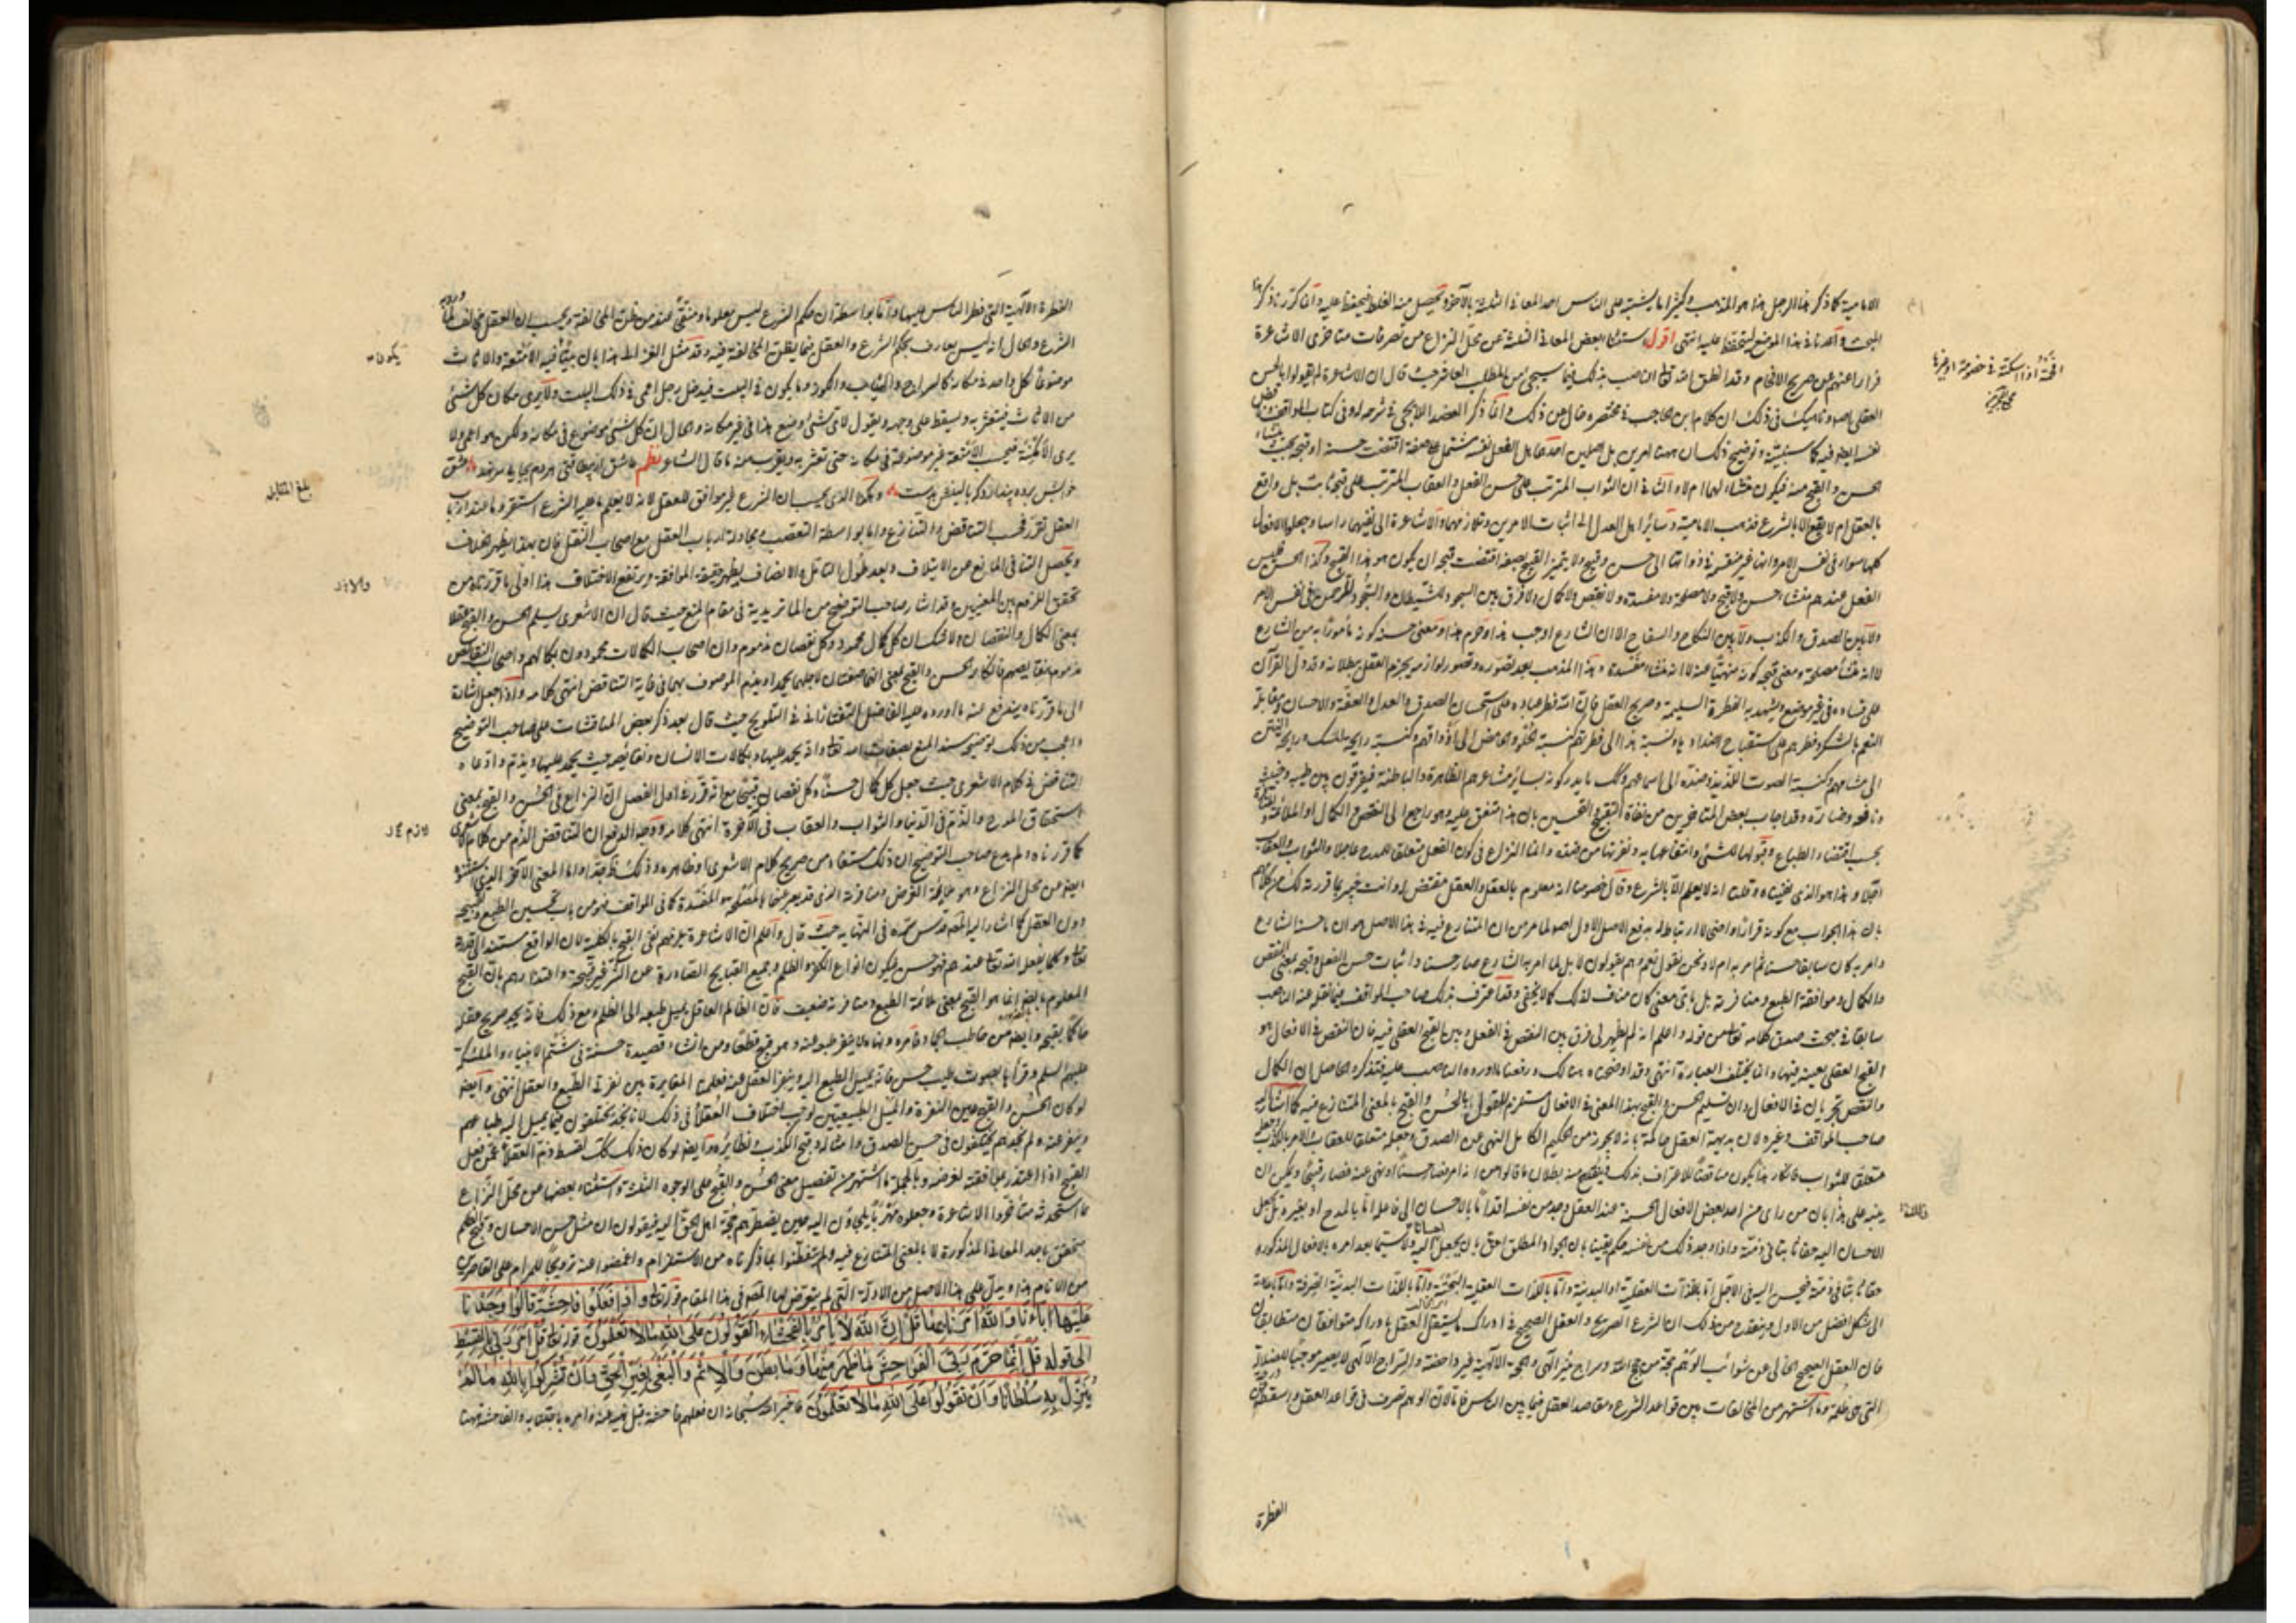 الامامية كما ذكر هذا الرجل هذا هو المذهب وكثيرا ما يشتبه على الناس احد المعاني الثلثة بالآخر ويحصل منه الغلط فيحفظ عليه وانا كررنا ذكر هذا
المبحث في هذا الموضع ليتحفظ عليه انتهى اقول استثناء بعض المعاني الثلثة عن محل النزاع من تصرفات متاخري الاشاعرة
فرارا عنهم عن صريح الافحام وقد انطق الله تعالى الناصب بذلك فيما سيجيء من المطلب العاشر حيث قال ان الاشاعرة لم يقولوا بالحسن
العقلي اصلا وناهيك في ذلك ان كلام ابن الحاجب في مختصره خال عن ذلك وانما ذكر العضد الايجي في شرحه له وفي كتاب المواقف
الحسن والقبح منه فيكون منشاء لهما ام لا والثاني ان الثواب المترتب على حسن الفعل والعقاب المترتب على قبحه ثابت بل واقع
بالعقل ام لا يقع الا بالشرع فذهب الامامية وسائر اهل العدل الى اثبات الامرين وتلازمهما والاشاعرة الى نفيهما راسا وجعلوا الافعال
كلها سواء في نفس الامر وانها غير منقسمة في ذواتها الى حسن وقبيح ولا يتميز القبيح بصفة اقتضت قبحه ان يكون هو هذا القبيح وكذا الحسن فليس
الفعل عندهم منشاء حسن ولا قبح ولا مصلحة ولا مفسدة ولا نقص ولا كمال ولا فرق بين السجود للشيطان والسجود للرحمن في نفس الامر
ولا بين الصدق والكذب ولا بين النكاح والسفاح الا ان الشارع اوجب هذا وحرم هذا ومعنى حسنه كونه مأمورا به من الشارع
لا انه منشأ مصلحة ومعنى قبحه كونه منهيا عنه لا انه منشاء مفسدة وهذا المذهب بعد تصوره وتصور لوازمه يجزم العقل ببطلانه وقد دل القرآن
على فساده في غير موضع ويشهد به الفطرة السليمة وصريح العقل فان الله فطر عباده على استحسان الصدق والعدل والعفة والاحسان ومقابلة
النعم بالشكر وفطرهم على استقباح اضدادها ونسبة هذا الى فطرتهم كنسبة الحلو والحامض الى اذواقهم وكنسبة رايحة المسك ورايحة النتن
الى مشامهم وكنسبة الصوت اللذيذ وضده الى اسماعهم وكذلك ما يدركونه بسائر مشاعرهم الظاهرة والباطنة فيفرقون بين طيبه وخبيثه
ونافعه وضاره وقد اجاب بعض المتاخرين من نفاة التقبيح والتحسين بان هذا متفق عليه وهو راجع الى النقص والكمال او الملائمة
بحسب اقتضاء الطباع وقبولها للشئ وانتفاعها به ونفرتها من ضده وانما النزاع في كون الفعل متعلقا للمدح عاجلا والثواب والعقاب
آجلا وهذا هو الذي نفيناه وقلنا انه لا يعلم الا بالشرع وقال خصومنا انه معلوم بالعقل والعقل مقتض له وانت خبير بما قررته لك
بان هذا الجواب مع كونه فرارا واضحا لا ارتباط له بدفع الاصل الاول اصلا لما مر من ان المتنازع فيه في هذا الاصل هو ان ما حسنه الشارع
وامر به كان سابقا حسنا ثم امر به ام لا ونحن نقول نعم وهم يقولون لا بل لما امر به الشارع صار حسنا واثبات حسن الفعل وقبحه بمعنى النقص
والكمال وموافقة الطبع ومنافرته بل باي معنى كان مناف لذلك كما لا يخفى وقد اعترف بذلك صاحب المواقف فيما نقله عنه الناصب
سابقا في مبحث صدق كلامه تعالى من قوله واعلم انه لم يظهر لي فرق بين النقص في الفعل وبين القبح العقلي فيه فان النقص في الافعال هو
القبح العقلي بعينه فيها وانما يختلف العبارة انتهى وقد اوضحناه هنالك ودفعنا ما اورده الناصب عليه فتذكر والحاصل ان الكمال
والنقص يجريان في الافعال وان تسليم الحسن والقبح بهذا المعنى في الافعال مستلزم للقول بالحسن والقبح بالمعنى المتنازع فيه كما اشار اليه
صاحب المواقف وغيره لان بديهة العقل حاكمة بانه لا يجوز من الحكيم الكامل النهي عن الصدق وجعله متعلقا للعقاب والامر بالكذب وجعله
متعلقا للثواب فانكار هذا يكون مناقضا للاعتراف بذلك فيتضح منه بطلان ما قالوا من انه امر فصار حسنا او نهى عنه فصار قبيحا ويمكن ان
ينبه على هذا بان من راى من احد بعض الافعال الحسنة عند العقل وجد من نفسه اقداما بالاحسان الى فاعلها اما بالمدح او بغيره
الاحسان اليه حقا ثابتا في ذمته واذا وجد ذلك من نفسه حكم يقينا بان الجواد المطلق احق بان يجعل لمن احسانا اليه ولا سيما بعد امره بالافعال المذكورة
حقا ثابتا في ذمته فيحسن اليه في الاجل اما باللذات العقلية او البدنية واما باللذات العقلية البحتة واما باللذات البدنية الصرفة واما باعادته
الى شكل افضل من الاول وينقدح من ذلك ان الشرع الصريح والعقل الصحيح في ادراك ما يستقل العقل بادراكه متوافقان متطابقان
فان العقل الصحيح الخالي عن شوائب الوهم حجة من حجج الله وسراج منير الهي والحجة الالهية غير داحضة والسراج الالهي لا يصير موجبا للضلالة
التي هي ظلمة وما اشتهر من المخالفات بين قواعد الشرع ومقاصد العقل فيما بين الناس فاما لان الوهم تصرف في قواعد العقل واسقطه
الفطرة
الفطرة الالهية التي فطر الناس عليها واما بواسطة ان حكم الشرع ليس معلوما ومتيقنا عند من ظن المخالفة ويحسب ان العقل مخالف
الشرع والحال انه ليس بعارف بحكم الشرع والعقل فيما يظن المخالفة فيه وقد مثل الغزالي هذا بان بيتا فيه الامتعة والاثاث
يكون
موضوعا كل واحد في مكانه كالسراج والثياب والكوز وما يكون في البيت فيدخل رجل اعمى في ذلك البيت ولا يرى مكان كل شئ
من الاثاث فيتعثر به ويسقط على وجهه ويقول لاي شئ وضع هذا في غير مكانه والحال ان كل شئ موضوع في مكانه ولكن هو اعمى ولا
يرى الامكنة فيحسب الامتعة غير موضوعة في مكانه حتى تعثر به ويقرب منه ما قال الشاعر نظم
بلغ المقابلة
وهكذا الذي يحسب ان الشرع غير موافق للعقل لانه لا يعلم ما عليه الشرع استقر وما اهتداه باب
العقل تقرر فحسب التناقض والتنازع واما بواسطة التعصب ومجادلة ارباب العقل مع اصحاب النقل فان بهذا يظهر الخلاف
ويحصل التنافي المانع عن الايتلاف وبعد طول التامل والانصاف يظهر حقيقة الموافقة ويرتفع الاختلاف هذا
تحقق اللزوم بين المعنيين وقد اشار صاحب التوضيح من الماتريدية في مقام المنع حيث قال ان الاشعري يسلم الحسن والقبح عقلا
بمعنى الكمال والنقصان ولا شك ان كل كمال محمود وكل نقصان مذموم وان اصحاب الكمالات محمودون بكمالهم واصحاب النقائص
مذمومون بنقايصهم فانكاره الحسن والقبح بمعنى انهما صفتان لاجلهما يحمد او يذم الموصوف بهما في غاية التناقض انتهى كلامه واذا جعل اشارة
الى ما قررناه يندفع عنه ما اورده عليه الفاضل التفتازاني في التلويح حيث قال بعد ذكر بعض المناقشات على صاحب التوضيح
واعجب من ذلك توضيحه سند المنع بصفات الله تعالى وانه يحمد عليها وبكمالات الانسان ونقائصه حيث يحمد عليها ويذم وادعاه
التناقض في كلام الاشعري حيث جعل كل كمال حسنا وكل نقصان قبيحا مع انه قرر في اول الفصل ان النزاع في الحسن والقبح بمعنى
استحقاق المدح والذم في الدنيا والثواب والعقاب في الآخرة انتهى كلامه ووجه الدفع ان التناقض
كما قررناه ولم يدع صاحب التوضيح ان ذلك مستفاد من صريح كلام الاشعري او ظاهره وذلك ظاهر جدا واما المعنى الآخر الذي استثنوه
ايضا من محل النزاع وهو ملائمة الغرض ومنافرته الذي قد يعبر عنها بالمصلحة والمفسدة كما في المواقف فهو من باب تحسين الطبع وتقبيحه
دون العقل كما اشار اليه المصنف قدس سره في النهاية حيث قال واعلم ان الاشاعرة يلزمهم نفي القبح بالكلية لان الواقع مستند الى قدرته
تعالى وكلما يفعل الله تعالى عندهم فهو حسن فيكون انواع الكفر والظلم وجميع القبايح الصادرة عن البشر غير قبيحة واعتذارهم بان القبح
المعلوم بالضرورة انما هو القبح بمعنى ملائمة الطبع ومنافرته ضعيف فان الظالم العاقل يميل طبعه الى الظلم ومع ذلك فانه يجد صريح عقله
حاكما بقبحه وايضا من خاطب الجماد وامره ونهاه لا ينفر طبعه عنه وهو قبيح قطعا ومن انشاء قصيدة حسنة في شتم الانبياء والملئكة
عليهم السلم وقرأها بصوت طيب حسن فانه يميل الطبع اليه وينفر العقل عنه فعلمنا المغايرة بين نفرة الطبع والعقل انتهى وايضا
لو كان الحسن والقبح عين النفرة والميل الطبيعيين لوجب اختلاف العقلاء في ذلك لانا نجد يختلفون فيما يميل اليه طباعهم
وينفر عنه ولم نجدهم يختلفون في حسن الصدق وامثاله وقبح الكذب ونظائره وايضا لو كان ذلك كذلك لسقط ذم العقلاء عمن فعل
القبيح اذا اعتذر بموافقته لغرضه وبالجملة ما اشتهر منه تفصيل معنى الحسن والقبح على الوجوه الثلثة واستثناء بعضها من محل النزاع
مما استحدثه متاخروا الاشاعرة وجعلوه مهربا يلجاون اليه حين يضطرهم حجة اهل الحق اليه فيقولون ان مثل حسن الاحسان وقبح الظلم
متحقق باحد المعاني المذكورة لا بالمعنى المتنازع فيه ولم يتفطنوا بما ذكرناه من الاستلزام واغمضوا عنه ترويجا للمرام على القاصرين
من الانام هذا ويدل على هذا الاصل من الادلة التي لم يتعرض لها المصنف في هذا المقام قوله تعالى واذا فعلوا فاحشة قالوا وجدنا
عليها آباءنا والله امرنا بها قل ان الله لا يأمر بالفحشاء اتقولون على الله ما لا تعلمون قوله تعالى قل امر ربي بالقسط
الى قوله قل انما حرم ربي الفواحش ما ظهر منها وما بطن والاثم والبغي بغير الحق وان تشركوا بالله ما لم
ينزل به سلطانا وان تقولوا على الله ما لا تعلمون فاخبر الله سبحانه ان فعلهم فاحشة قبل نهيه عنه وامره باجتنابه والفاحشة هنا